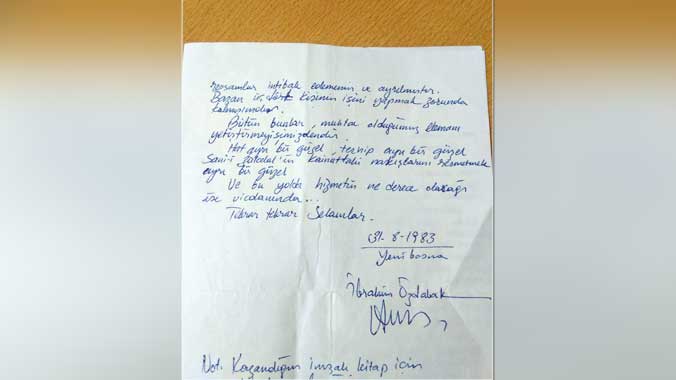 ressamlar intibak edememiş ve ayrılmıştır.
Bazan üç dört kişinin işini yapmak zorunda
kalmışımdır.
Bütün bunlar, muhtaç olduğumuz elemanı
yetiştirmeyişimizdendir.
Hat ayrı bir güzel, tezhip ayrı bir güzel
Sani-i Zülcelal'in kâinattaki nakışlarını resmetmek
ayrı bir güzel
Ve bu yolda hizmetin ne derece olacağı
ise vicdanımda...
Tekrar tekrar Selamlar.
31-8-1983
Yenibosna
İbrahim Özdabak
Not. Kazandığım imzalı kitap için